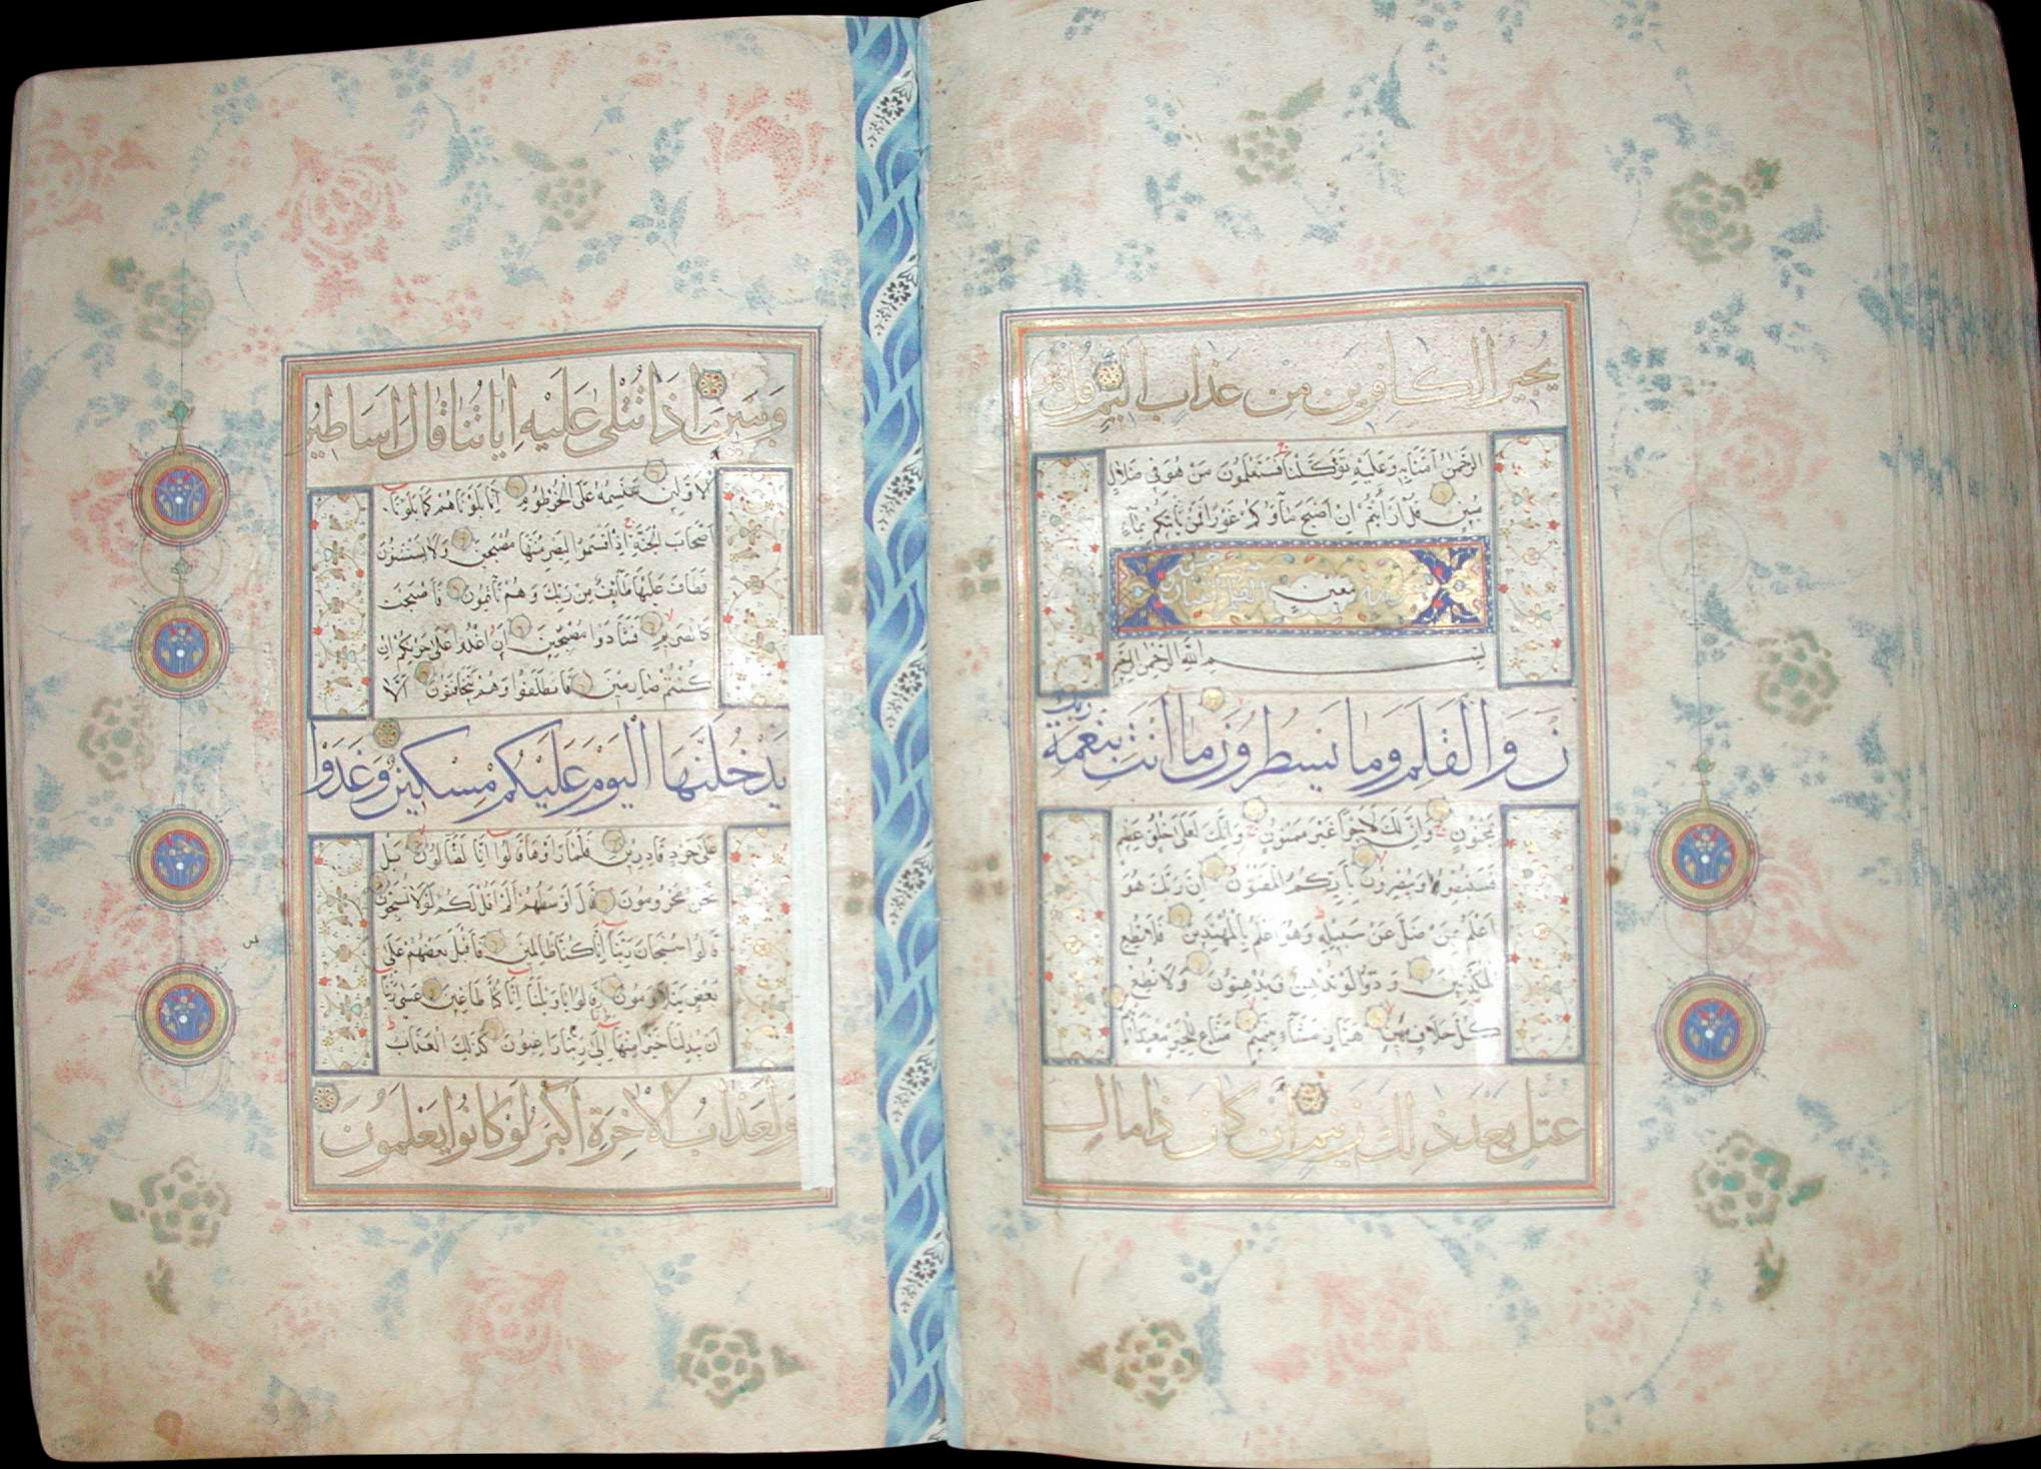 يُجيرُ الكافِرينَ مِن عَذابٍ اَليمٍ قُل هُوَ
الرَّحمٰنُ آمَنّا بِهِ وَعَلَيهِ تَوَكَّلنا فَسَتَعلَمونَ مَن هُوَ فى ضَلالٍ
مُبينٍ قُل اَرَاَيتُم اِن اَصبَحَ ماؤُكُم غَورًا فَمَن يَأتيكُم بِماءٍ
مَعينٍ
بِسمِ اللهِ الرَّحمٰنِ الرَّحيمِ
نَ وَالقَلَمِ وَما يَسطُرونَ ما اَنتَ بِنِعمَةِ رَبِّكَ
بِمَجنونٍ وَاِنَّ لَكَ لَاَجرًا غَيرَ مَمنونٍ وَاِنَّكَ لَعَلىٰ خُلُقٍ عَظيمٍ
فَسَتُبصِرُ وَيُبصِرونَ بِاَيِّكُمُ المَفتونُ اِنَّ رَبَّكَ هُوَ
اَعلَمُ بِمَن ضَلَّ عَن سَبيلِهِ وَهُوَ اَعلَمُ بِالمُهتَدينَ فَلا تُطِعِ
المُكَذِّبينَ وَدّوا لَو تُدهِنُ فَيُدهِنونَ وَلا تُطِع
كُلَّ حَلّافٍ مَهينٍ هَمّازٍ مَشّاءٍ بِنَميمٍ مَنّاعٍ لِلخَيرِ مُعتَدٍ اَثيمٍ
عُتُلٍّ بَعدَ ذٰلِكَ زَنيمٍ اَن كانَ ذا مالٍ
وَبَنينَ اِذا تُتلىٰ عَلَيهِ اٰياتُنا قالَ اَساطيرُ
الاَوَّلينَ سَنَسِمُهُ عَلَى الخُرطومِ اِنّا بَلَوناهُم كَما بَلَونا
اَصحابَ الجَنَّةِ اِذ اَقسَموا لَيَصرِمُنَّها مُصبِحينَ وَلا يَستَثنونَ
فَطافَ عَلَيها طائِفٌ مِن رَبِّكَ وَهُم نائِمونَ فَاَصبَحَت
كَالصَّريمِ فَتَنادَوا مُصبِحينَ اَنِ اغدوا عَلىٰ حَرثِكُم اِن
كُنتُم صارِمينَ فَانطَلَقوا وَهُم يَتَخافَتونَ اَن لا
يَدخُلَنَّهَا اليَومَ عَلَيكُم مِسكينٌ وَغَدَوا
عَلىٰ حَردٍ قادِرينَ فَلَمّا رَاَوها قالوا اِنّا لَضالّونَ بَل
نَحنُ مَحرومونَ قالَ اَوسَطُهُم اَلَم اَقُل لَكُم لَولا تُسَبِّحونَ
قالوا سُبحانَ رَبِّنا اِنّا كُنّا ظالِمينَ فَاَقبَلَ بَعضُهُم عَلىٰ
بَعضٍ يَتَلاوَمونَ قالوا يا وَيلَنا اِنّا كُنّا طاغينَ عَسىٰ رَبُّنا
اَن يُبدِلَنا خَيرًا مِنها اِنّا اِلىٰ رَبِّنا راغِبونَ كَذٰلِكَ العَذابُ
وَلَعَذابُ الاٰخِرَةِ اَكبَرُ لَو كانوا يَعلَمونَ